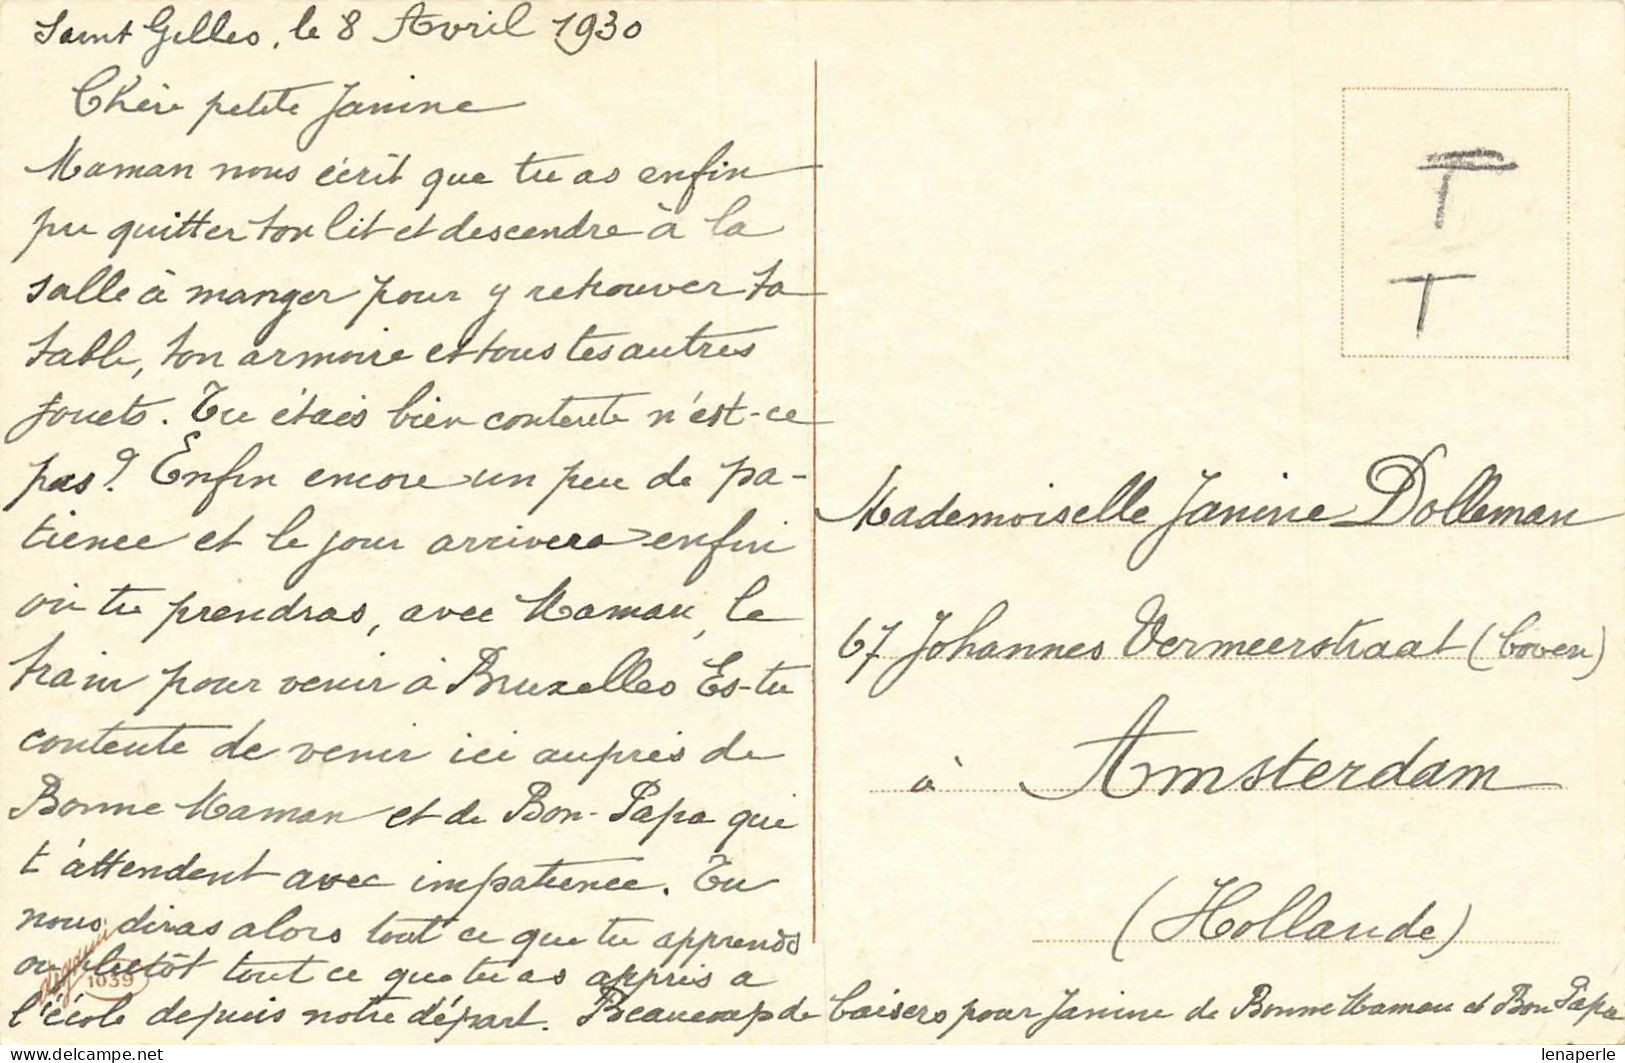 Saint Gilles, le 8 Avril 1930
Chère petite Janine
Maman nous écrit que tu as enfin
pu quitter ton lit et descendre à la
salle à manger pour y retrouver ta
table, ton armoire et tous tes autres
jouets. Tu étais bien contente n'est-ce
pas? Enfin encore un peu de pa-
tience et le jour arrivera enfin
où tu prendras, avec Maman, le
train pour venir à Bruxelles Es-tu
contente de venir ici auprès de
Bonne Maman et de Bon-Papa qui
t'attendent avec impatience. Tu
nous diras alors tout ce que tu apprends
ou plutôt tout ce que tu as appris a
l'école depuis notre départ. Beaucoup de baisers pour Janine de Bonne Maman et Bon Papa
1039
T
T
Mademoiselle Janine Dolleman
67 Johannes Vermeerstraat (boven)
à Amsterdam
(Hollande)
lenaperle